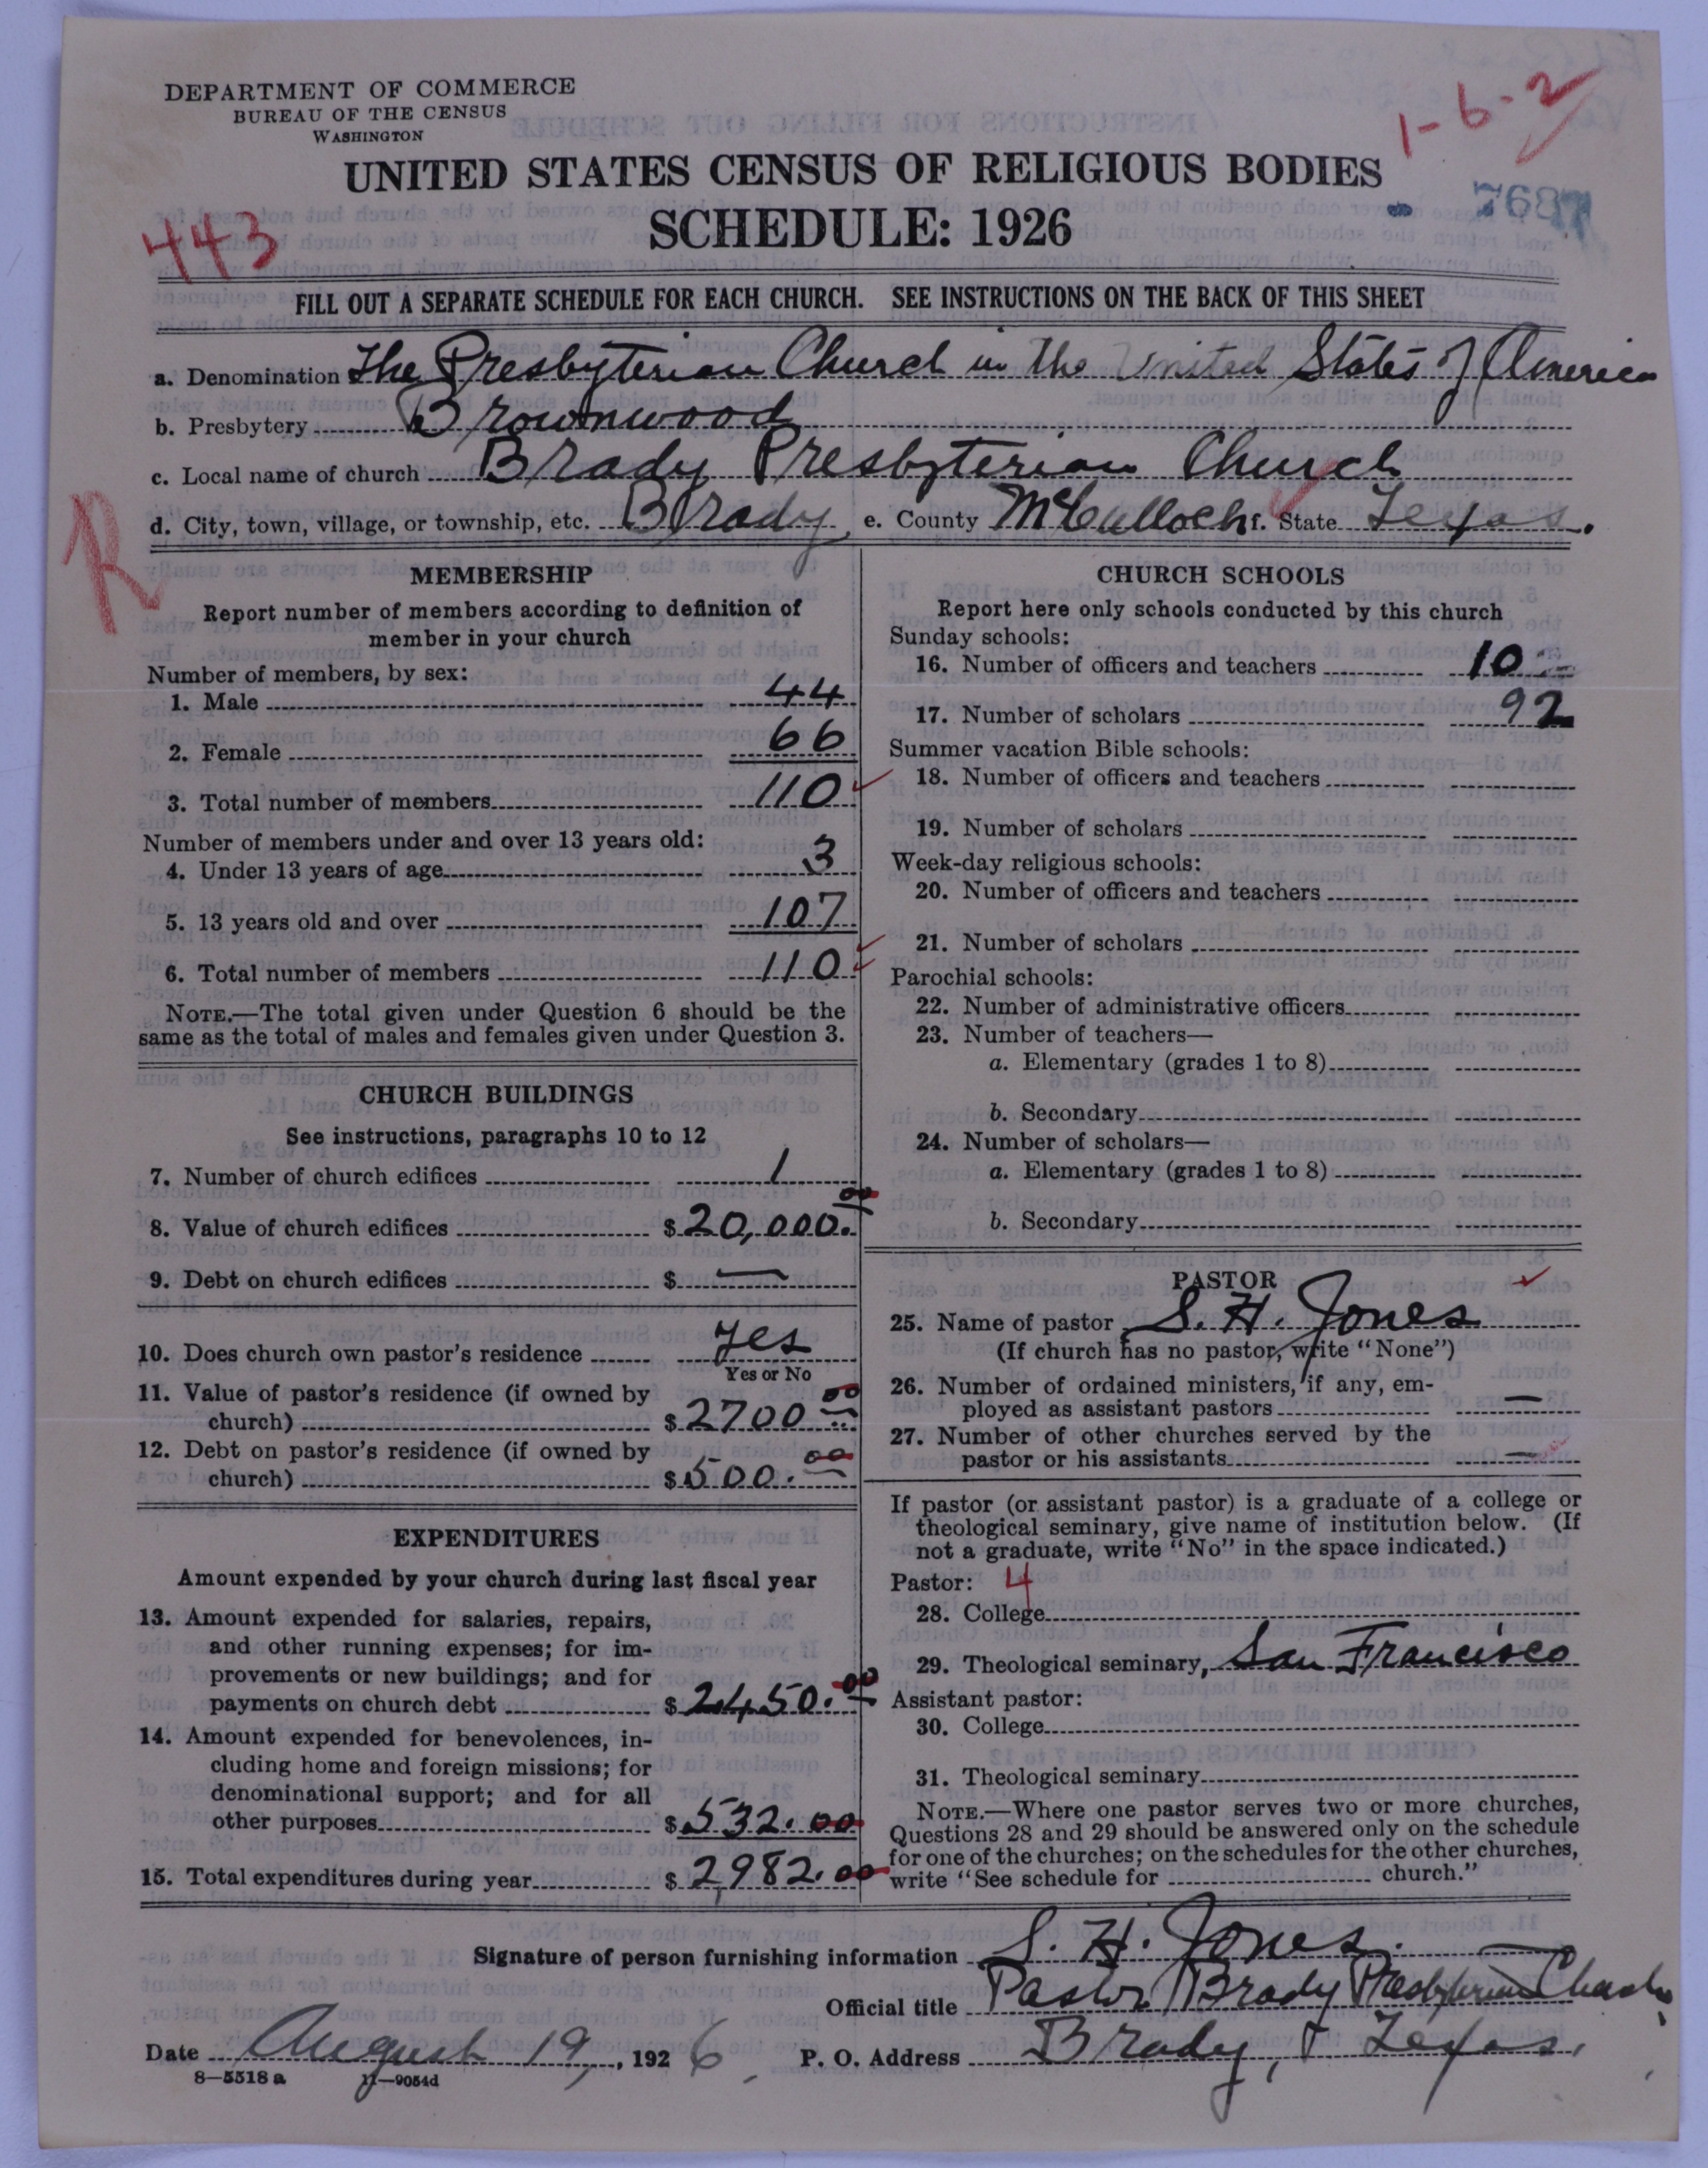 DEPARTMENT OF COMMERCE
BUREAU OF THE CENSUS
WASHINGTON
1-6-2
UNITED STATES CENSUS OF RELIGIOUS BODIES
SCHEDULE: 1926
443
FILL OUT A SEPARATE SCHEDULE FOR EACH CHURCH. SEE INSTRUCTIONS ON THE BACK OF THIS SHEET
a. Denomination The Presbyterian Church in the United States of America
b. Presbytery Brownwood
c. Local name of church Brady Presbyterian Church
d. City, town, village, or township, etc. Brady e. County McCulloch f. State Texas.
R
MEMBERSHIP
Report number of members according to definition of
member in your church
Number of members, by sex:
1. Male 44
2. Female 66
3. Total number of members 110
Number of members under and over 13 years old:
4. Under 13 years of age 3
5. 13 years old and over 107
6. Total number of members 110
NOTE.—The total given under Question 6 should be the
same as the total of males and females given under Question 3.
CHURCH BUILDINGS
See instructions, paragraphs 10 to 12
7. Number of church edifices 1
8. Value of church edifices $20,000.00
9. Debt on church edifices $ —
10. Does church own pastor's residence Yes
Yes or No
11. Value of pastor's residence (if owned by
church) $2700 00
12. Debt on pastor's residence (if owned by
church) $500.00
EXPENDITURES
Amount expended by your church during last fiscal year
13. Amount expended for salaries, repairs,
and other running expenses; for im-
provements or new buildings; and for
payments on church debt $2450.00
14. Amount expended for benevolences, in-
cluding home and foreign missions; for
denominational support; and for all
other purposes $532.00
15. Total expenditures during year $2,982.00
CHURCH SCHOOLS
Report here only schools conducted by this church
Sunday schools:
16. Number of officers and teachers 10
17. Number of scholars 92
Summer vacation Bible schools:
18. Number of officers and teachers
19. Number of scholars
Week-day religious schools:
20. Number of officers and teachers
21. Number of scholars
Parochial schools:
22. Number of administrative officers
23. Number of teachers—
a. Elementary (grades 1 to 8)
b. Secondary
24. Number of scholars—
a. Elementary (grades 1 to 8)
b. Secondary
PASTOR
25. Name of pastor S. H. Jones
(If church has no pastor, write "None")
26. Number of ordained ministers, if any, em-
ployed as assistant pastors —
27. Number of other churches served by the
pastor or his assistants —
If pastor (or assistant pastor) is a graduate of a college or
theological seminary, give name of institution below. (If
not a graduate, write "No" in the space indicated.)
Pastor: 4
28. College
29. Theological seminary, San Francisco
Assistant pastor:
30. College
31. Theological seminary
NOTE.—Where one pastor serves two or more churches,
Questions 28 and 29 should be answered only on the schedule
for one of the churches; on the schedules for the other churches,
write "See schedule for church."
Signature of person furnishing information S. H. Jones.
Official title Pastor Brady Presbyterian Church
Date August 19, 1926 P. O. Address Brady, Texas.
8—5518 a 11—9054d